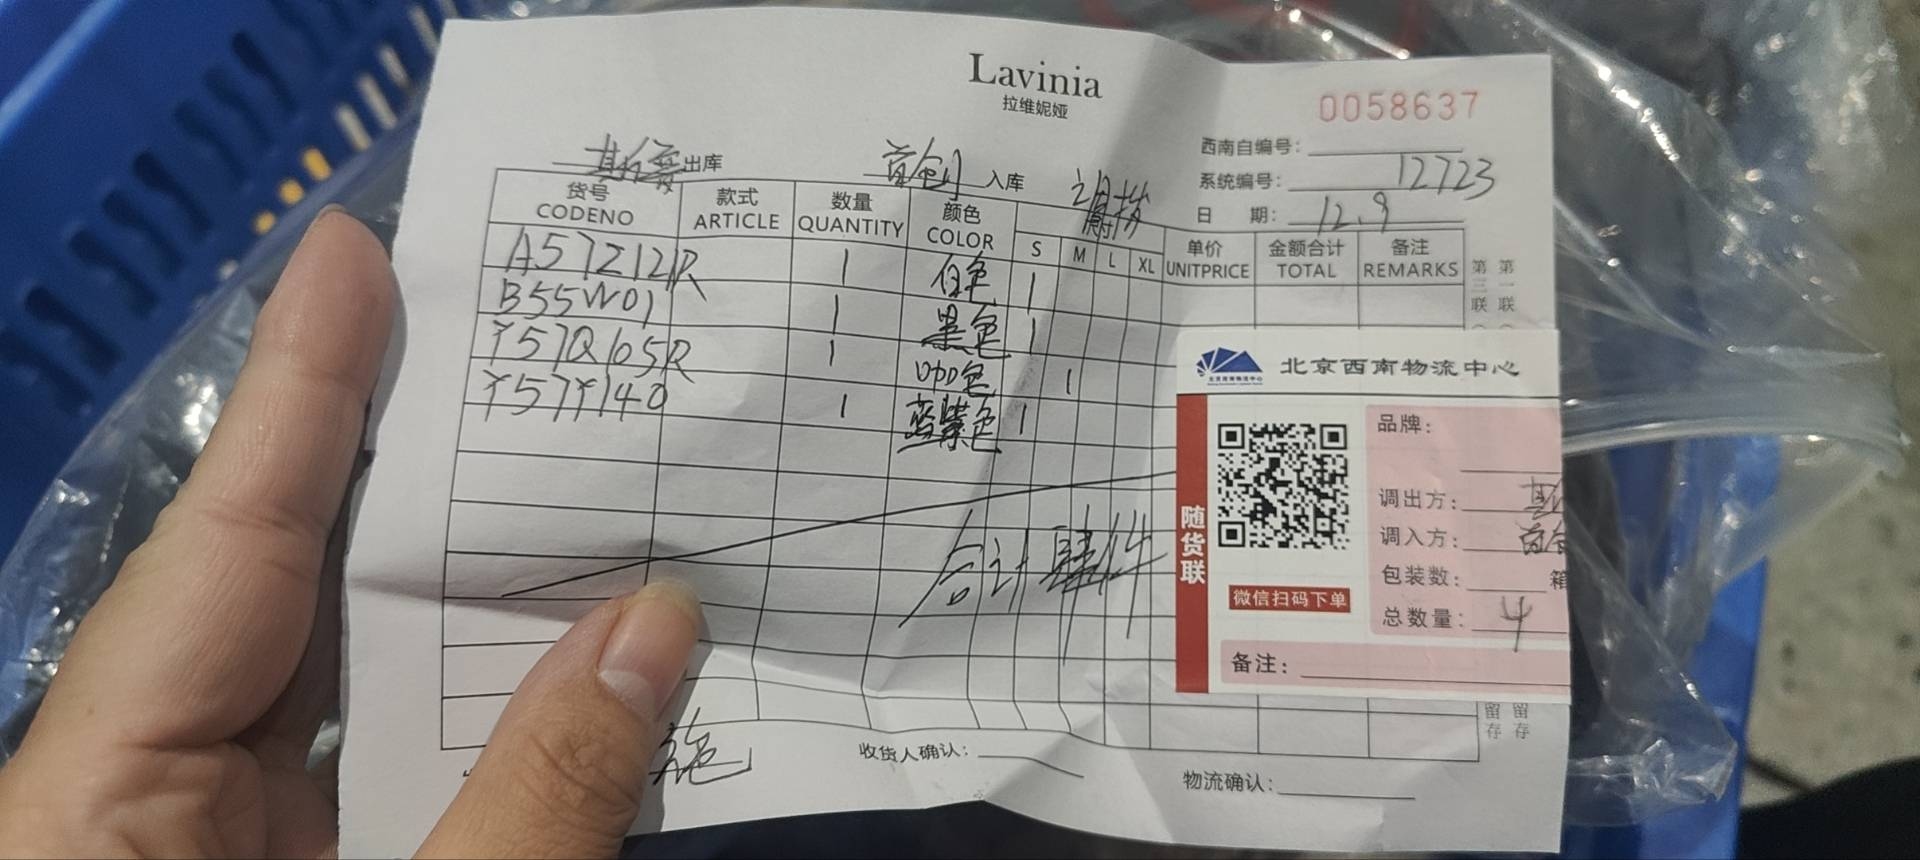 Lavinia
拉维妮娅
0058637
西南自编号:
出库 首创 入库 调拨
系统编号: 12723
日 期: 12.9
货号 款式 数量 颜色 单价 金额合计 备注
CODENO ARTICLE QUANTITY COLOR S M L XL UNITPRICE TOTAL REMARKS
A57Z121R 1 白色 1
B55W01 1 黑色 1
Y57Q105R 1 咖色 1
Y57Y140 1 蓝紫色 1
合计肆件
第三联
第一联
北京西南物流中心
北京西南物流中心
随货联
微信扫码下单
品牌:
调出方:
调入方: 首
包装数: 箱
总数量: 4
备注:
留存
留存
收货人确认:
物流确认: